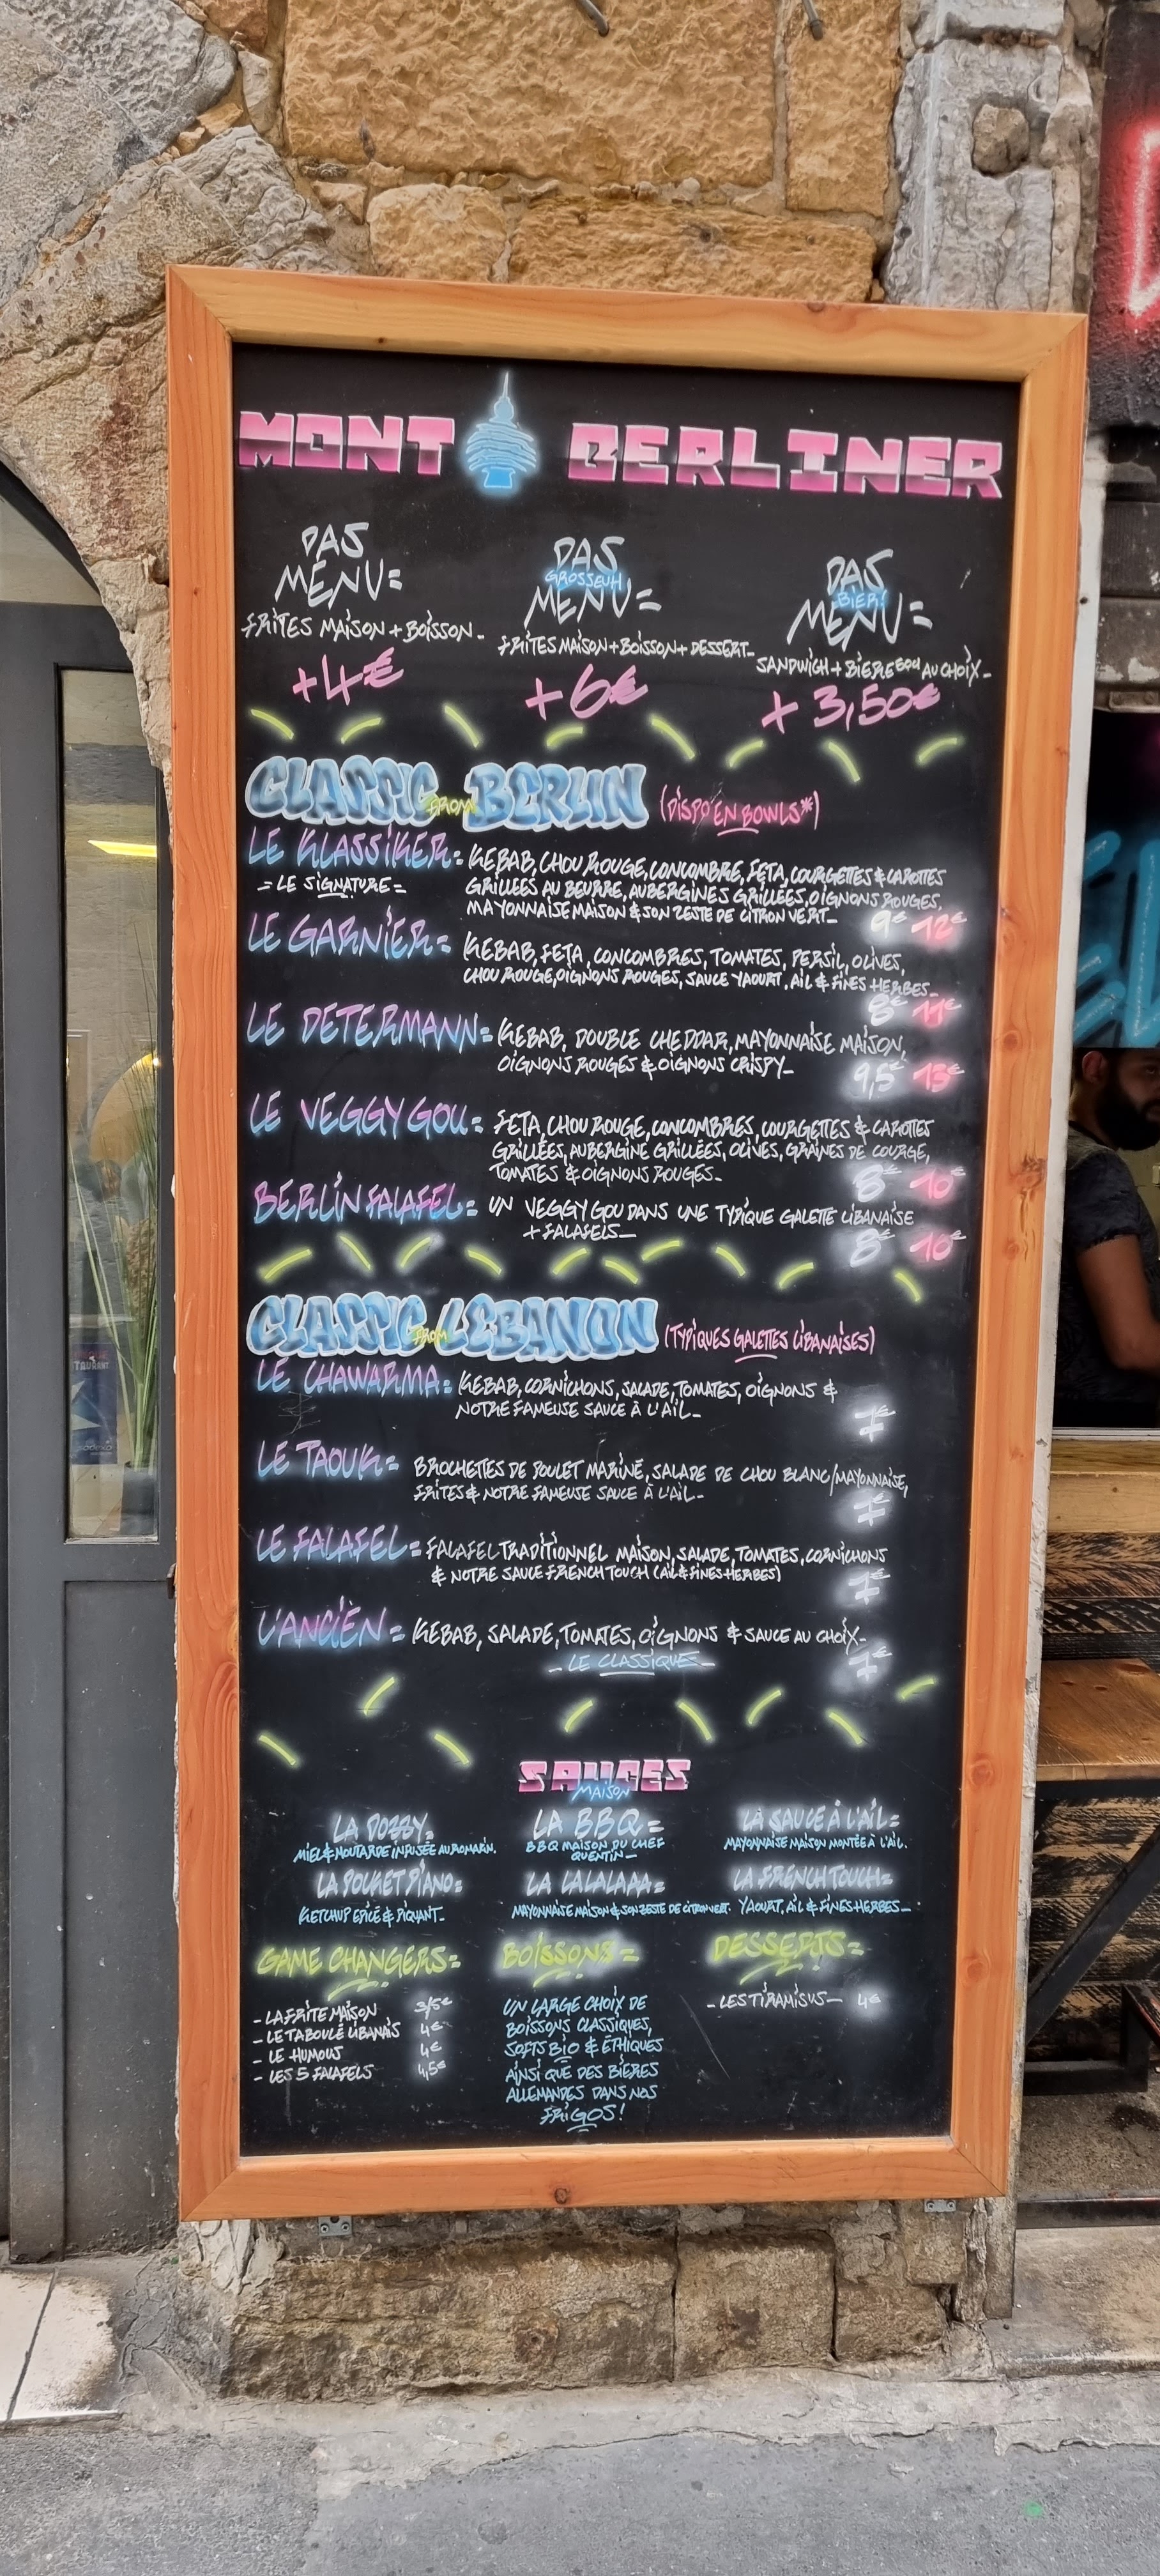 MONT BERLINER
DAS
MENU=
FRITES MAISON + BOISSON_
+4€
DAS
GROSSEUH
MENU=
FRITES MAISON + BOISSON + DESSERT_
+6€
DAS
BIER!
MENU=
SANDWICH + BIERE 50cl AU CHOIX_
+ 3,50€
CLASSIC FROM BERLIN (DISPO EN BOWLS*)
LE KLASSIKER= KEBAB, CHOU ROUGE, CONCOMBRE, FETA, COURGETTES & CAROTTES
= LE SIGNATURE = GRILLÉES AU BEURRE, AUBERGINES GRILLÉES, OIGNONS ROUGES,
MAYONNAISE MAISON & SON ZESTE DE CITRON VERT_ 9€ 12€
LE GARNIER= KEBAB, FETA, CONCOMBRES, TOMATES, PERSIL, OLIVES,
CHOU ROUGE, OIGNONS ROUGES, SAUCE YAOURT, AIL & FINES HERBES_
8€ 11€
LE DETERMANN= KEBAB, DOUBLE CHEDDAR, MAYONNAISE MAISON,
OIGNONS ROUGES & OIGNONS CRISPY_
9,5€ 13€
LE VEGGY GOU= FETA, CHOU ROUGE, CONCOMBRES, COURGETTES & CAROTTES
GRILLÉES, AUBERGINE GRILLÉES, OLIVES, GRAINES DE COURGE,
TOMATES & OIGNONS ROUGES_ 8€ 10€
BERLIN FALAFEL= UN VEGGY GOU DANS UNE TYPIQUE GALETTE LIBANAISE
+ FALAFELS_
8€ 10€
CLASSIC FROM LEBANON (TYPIQUES GALETTES LIBANAISES)
LE CHAWARMA= KEBAB, CORNICHONS, SALADE, TOMATES, OIGNONS &
NOTRE FAMEUSE SAUCE À L'AIL_
7€
LE TAOUK= BROCHETTES DE POULET MARINÉ, SALADE DE CHOU BLANC/MAYONNAISE,
FRITES & NOTRE FAMEUSE SAUCE À L'AIL_
7€
LE FALAFEL= FALAFEL TRADITIONNEL MAISON, SALADE, TOMATES, CORNICHONS
& NOTRE SAUCE FRENCH TOUCH (AIL & FINES HERBES)
7€
L'ANCIEN= KEBAB, SALADE, TOMATES, OIGNONS & SAUCE AU CHOIX_
_ LE CLASSIQUE _
7€
SAUCES
MAISON
LA DOZZY=
MIEL & MOUTARDE INFUSÉE AU ROMARIN.
LA BBQ=
BBQ MAISON DU CHEF
QUENTIN_
LA SAUCE À L'AIL=
MAYONNAISE MAISON MONTÉE À L'AIL.
LA POCKET PIANO=
KETCHUP EPICÉ & PIQUANT_
LA LALALAAA=
MAYONNAISE MAISON & SON ZESTE DE CITRON VERT.
LA FRENCH TOUCH=
YAOURT, AIL & FINES HERBES_
GAME CHANGERS=
- LA FRITE MAISON 3/5€
- LE TABOULÉ LIBANAIS 4€
- LE HUMOUS 4€
- LES 5 FALAFELS 4,5€
BOISSONS=
UN LARGE CHOIX DE
BOISSONS CLASSIQUES,
SOFTS BIO & ÉTHIQUES
AINSI QUE DES BIÈRES
ALLEMANDES DANS NOS
FRIGOS!
DESSERTS=
- LES TIRAMISUS_ 4€